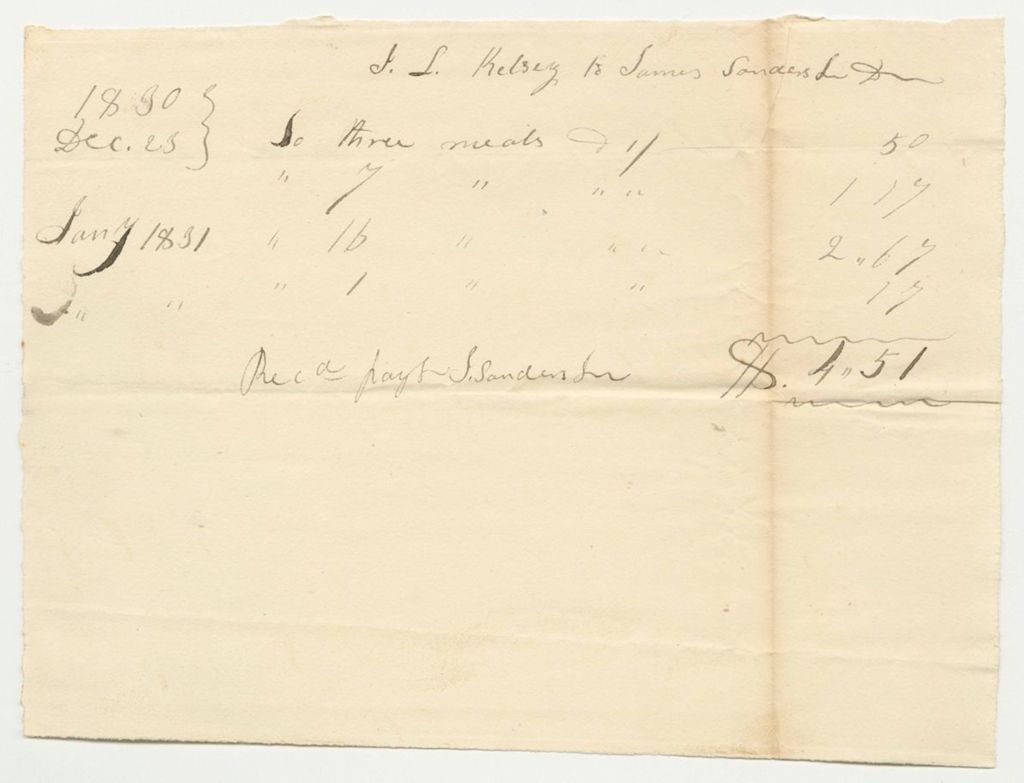 J. L. Kelsey to James Sanderson Dr
1830 }
Dec. 23 } To three meals @ 1/ 50
" 7 " " " 1 17
Jany 1831 " 16 " " " 2 "67
" " " 1 " " 17
Recd payt J. Sanderson $. 4"51